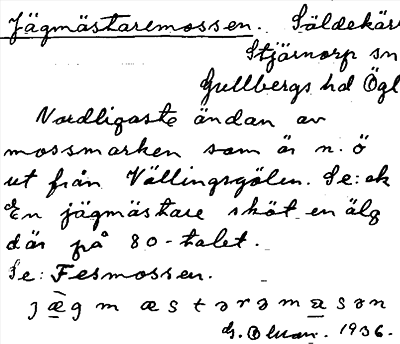 Jägmästaremossen. Säldekär
Stjärnorp sn
Gullbergs hd Ögl
Nordligaste ändan av
mossmarken som är n. ö
ut från Vällingsgölen. Se: ek
En jägmästare sköt en älg
där på 80-talet.
Se: Fesmossen.
jægmæstərəmasən
1936.